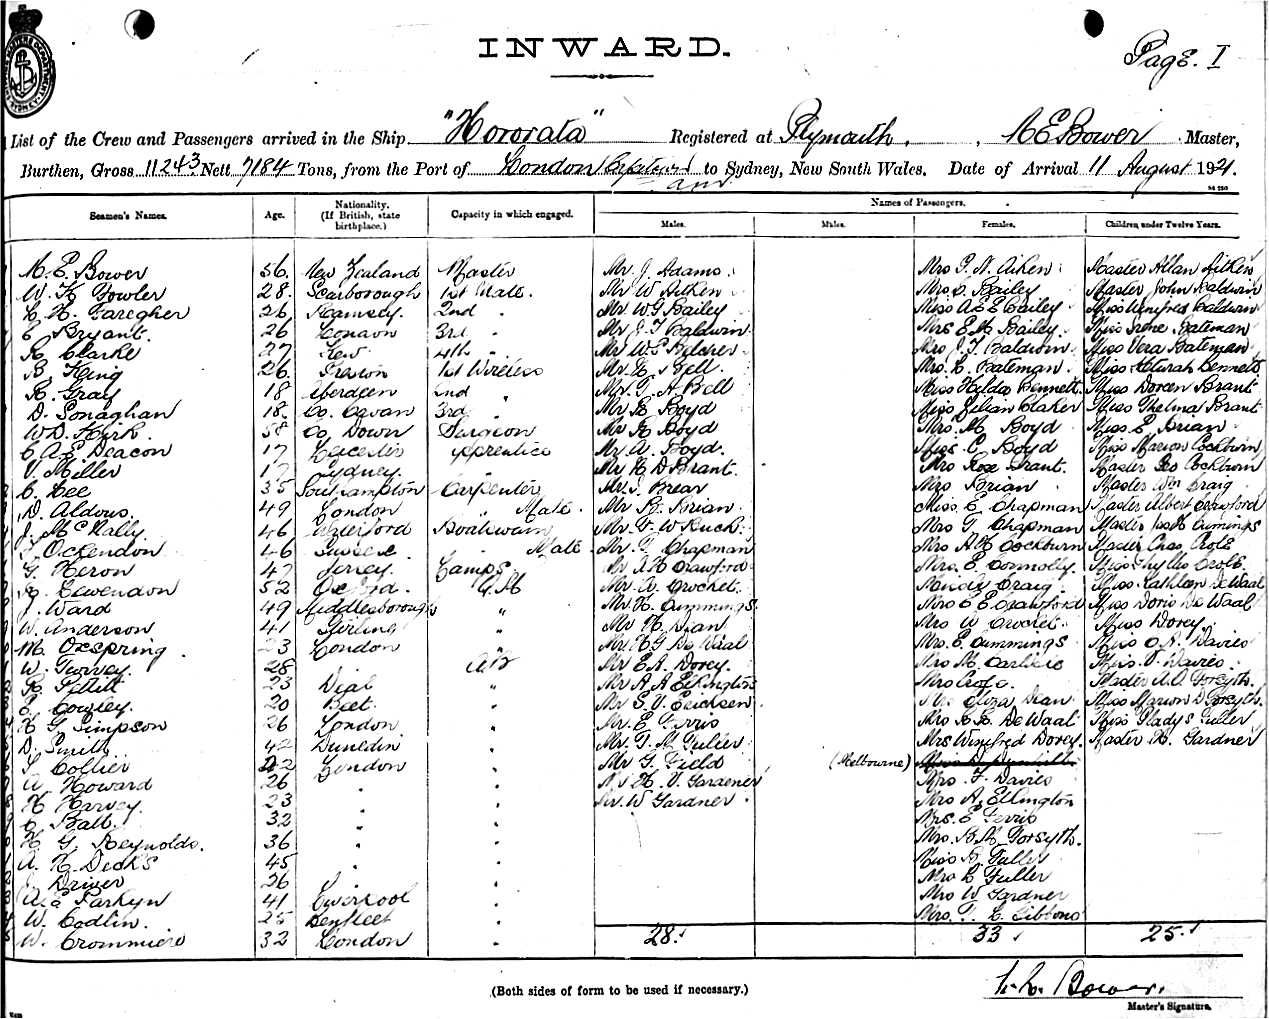 INWARD.
Page. I
List of the Crew and Passengers arrived in the Ship "Hororata" Registered at Plymouth, Bower Master,
Burthen, Gross 11243 Nett 7184 Tons, from the Port of London to Sydney, New South Wales. Date of Arrival 11 August 1921.
Seamen's Names. Age. Nationality. (If British, state birthplace.) Capacity in which engaged. Names of Passengers.
Males. Males. Females. Children under Twelve Years.
E. Bower 56. New Zealand Master Mr. J. Adams Mrs Aiken Master Allan Aitken
W. Fowler 28. Scarborough 1st Mate. Mr W Aitken Bailey Master John Baldwin
Faregher 26. Ramsey 2nd " Mr. W G Bailey Miss A E E Bailey Miss Winifred Baldwin
Bryant. 26 London 3rd " Mr J T Baldwin Mrs E M Bailey Miss Irene Bateman
Clarke 27 Kew 4th " Mr W Belcher Mrs J T Baldwin Miss Vera Bateman
King 26. 1st Wireless Mr. Bell Mrs. Bateman Miss Bennett
Gray 18 Aberdeen 2nd " Mr. A Bell Miss Hilda Bennett Miss Doreen Brant
D. Donaghan 18. Co. Cavan 3rd Mr Boyd Miss Lilian Blaker Miss Thelma Brant
W D. Kirk. 58 Co Down Surgeon Mr Boyd Mrs. M Boyd Miss. E Brian
C A E Deacon 17 Leicester Apprentice Mr A. Boyd. Miss C Boyd Miss Marion Cockburn
V. Miller 17 Sydney. " Mr H D Brant. Mrs Rose Brant. Master Geo Cockburn
C. Lee 35 Southampton Carpenter Mr. Brear Mrs Brian Master Wm Craig
D. Aldous. 49 London " Mate. Mr B. Brian Miss E Chapman Master Albert Crawford
J. McNally. 46 Waterford Boatswain Mr. W Buck Mrs Chapman Master Cummings
Ockendon 46 Sussex " Mate Mr. Chapman Mrs A H Cockburn Master Chas Croft
G. Heron 47 Jersey. Lamps. Mr A H Crawford Mrs. E Connolly. Miss Phyllis Croft
Cavendon 52 Oxford. A.B Mr. A. Crocket Craig Miss. Kathleen De Waal
J. Ward 49 Middlesborough " Mr. H. Cummings Mrs E E Crawford Miss Doris De Waal
W. Anderson 41 Stirling " Mr H Dean Mrs W Crocket. Miss Dorey.
M. Oxspring 23 London " Mr H G De Waal Mrs. E. Cummings Miss A. Davies
W. Turvey. 28 AB Mr E A. Dorey. Mrs M. Carlisle Miss. Davies
Pettit 23 Deal " Mr A A Elkington Mrs Croft. Master A A Forsyth.
Cowley. 20 " Mr S V. Erichsen Eliza Dean Miss Marion D Forsyth.
H G Simpson 26 London " Mr. E Ferris Mrs De Waal Miss Gladys Fuller
D. Smith 42 Dunedin " Mr. M Fuller Mrs Winifred Dorey. Master H. Gardner
Collier 22 London " Mr G. Field (Melbourne)
A. Howard 26 " " H. V. Gardener Mrs. F. Davies
H Harvey. 23 " " W Gardner. Mrs A, Elkington
Ball. 32 " " Mrs. E Ferris
H G. Reynolds. 36 " " Mrs. Forsyth.
A. H Decks 45 " " Miss Fuller
Driver 26 " " Mrs Fuller
Parkyn 41 Liverpool " Mrs W Gardner
W. Codlin. 25 Benfleet " Mrs. Gibbons
W. Crommiere 32 London " 28. 33 25.
(Both sides of form to be used if necessary.)
Bower.
Master's Signature.